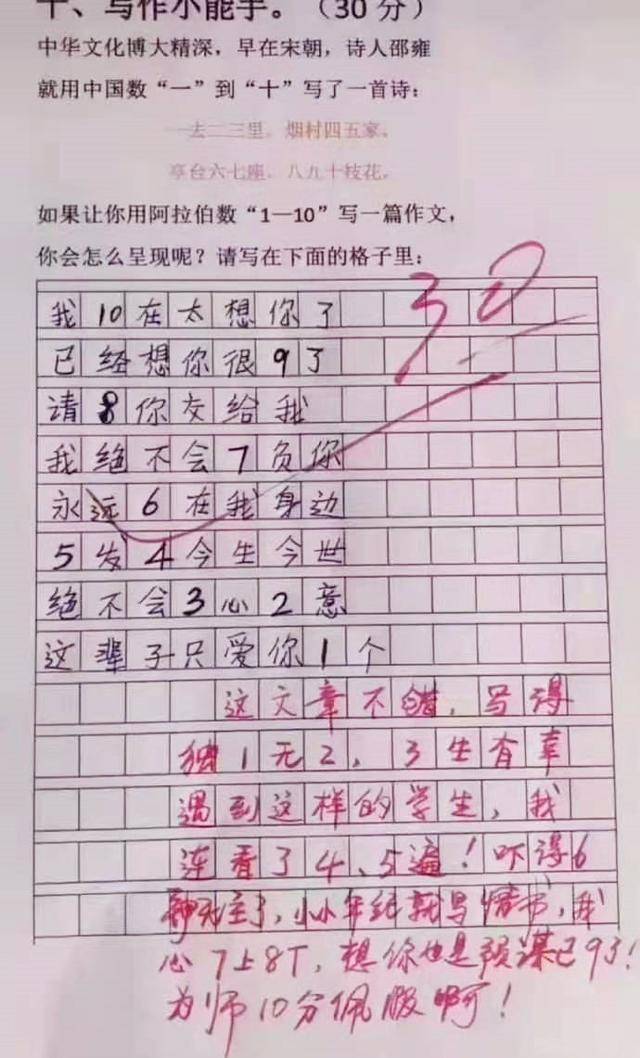 十、写作小能手。（30分）
中华文化博大精深，早在宋朝，诗人邵雍
就用中国数“一”到“十”写了一首诗：
一去二三里，烟村四五家，
亭台六七座，八九十枝花。
如果让你用阿拉伯数“1—10”写一篇作文，
你会怎么呈现呢？请写在下面的格子里：
30
我10在太想你了
已经想你很9了
请8你交给我
我绝不会7负你
永远6在我身边
5发4今生今世
绝不会3心2意
这辈子只爱你1个
这文章不错，写得
独1无2，3生有幸
遇到这样的学生，我
连看了4、5遍！吓得6
神无主了，小小年纪就写情书，我
心7上8下，想你也是预谋已9了！
为师10分佩服啊！